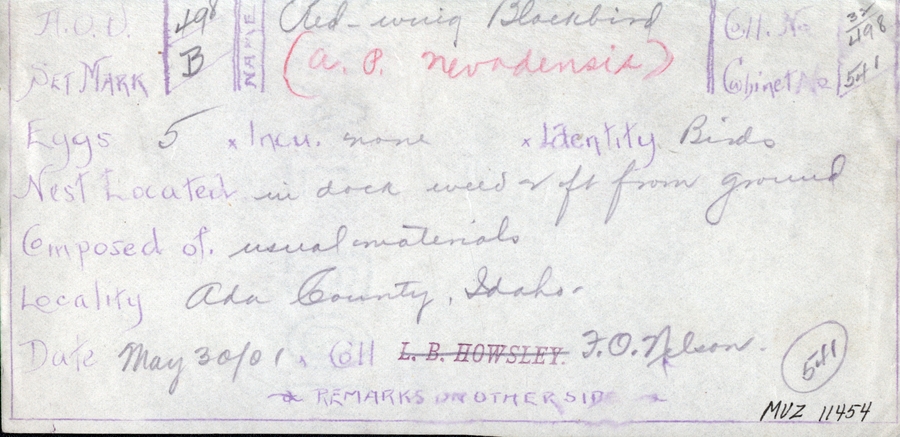 A.O.U. 498 NAME Red-wing Blackbird Coll. No. 32/498
Set Mark B (A. P. nevadensis) Cabinet No 541
Eggs 5 x Incu. none x Identity Birds
Nest Located in dock weed 2 ft from ground
Composed of. usual materials
Locality Ada County, Idaho.
Date May 30/01 x Coll L. B. HOWSLEY. F.O. Nelson.
541
REMARKS ON OTHER SIDE
MVZ 11454